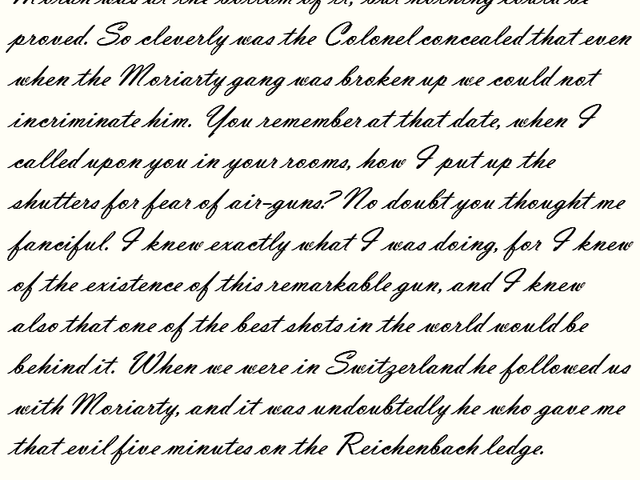 Moran was at the bottom of it, but nothing could be
proved. So cleverly was the Colonel concealed that even
when the Moriarty gang was broken up we could not
incriminate him. You remember at that date, when I
called upon you in your rooms, how I put up the
shutters for fear of air-guns? No doubt you thought me
fanciful. I knew exactly what I was doing, for I knew
of the existence of this remarkable gun, and I knew
also that one of the best shots in the world would be
behind it. When we were in Switzerland he followed us
with Moriarty, and it was undoubtedly he who gave me
that evil five minutes on the Reichenbach ledge.